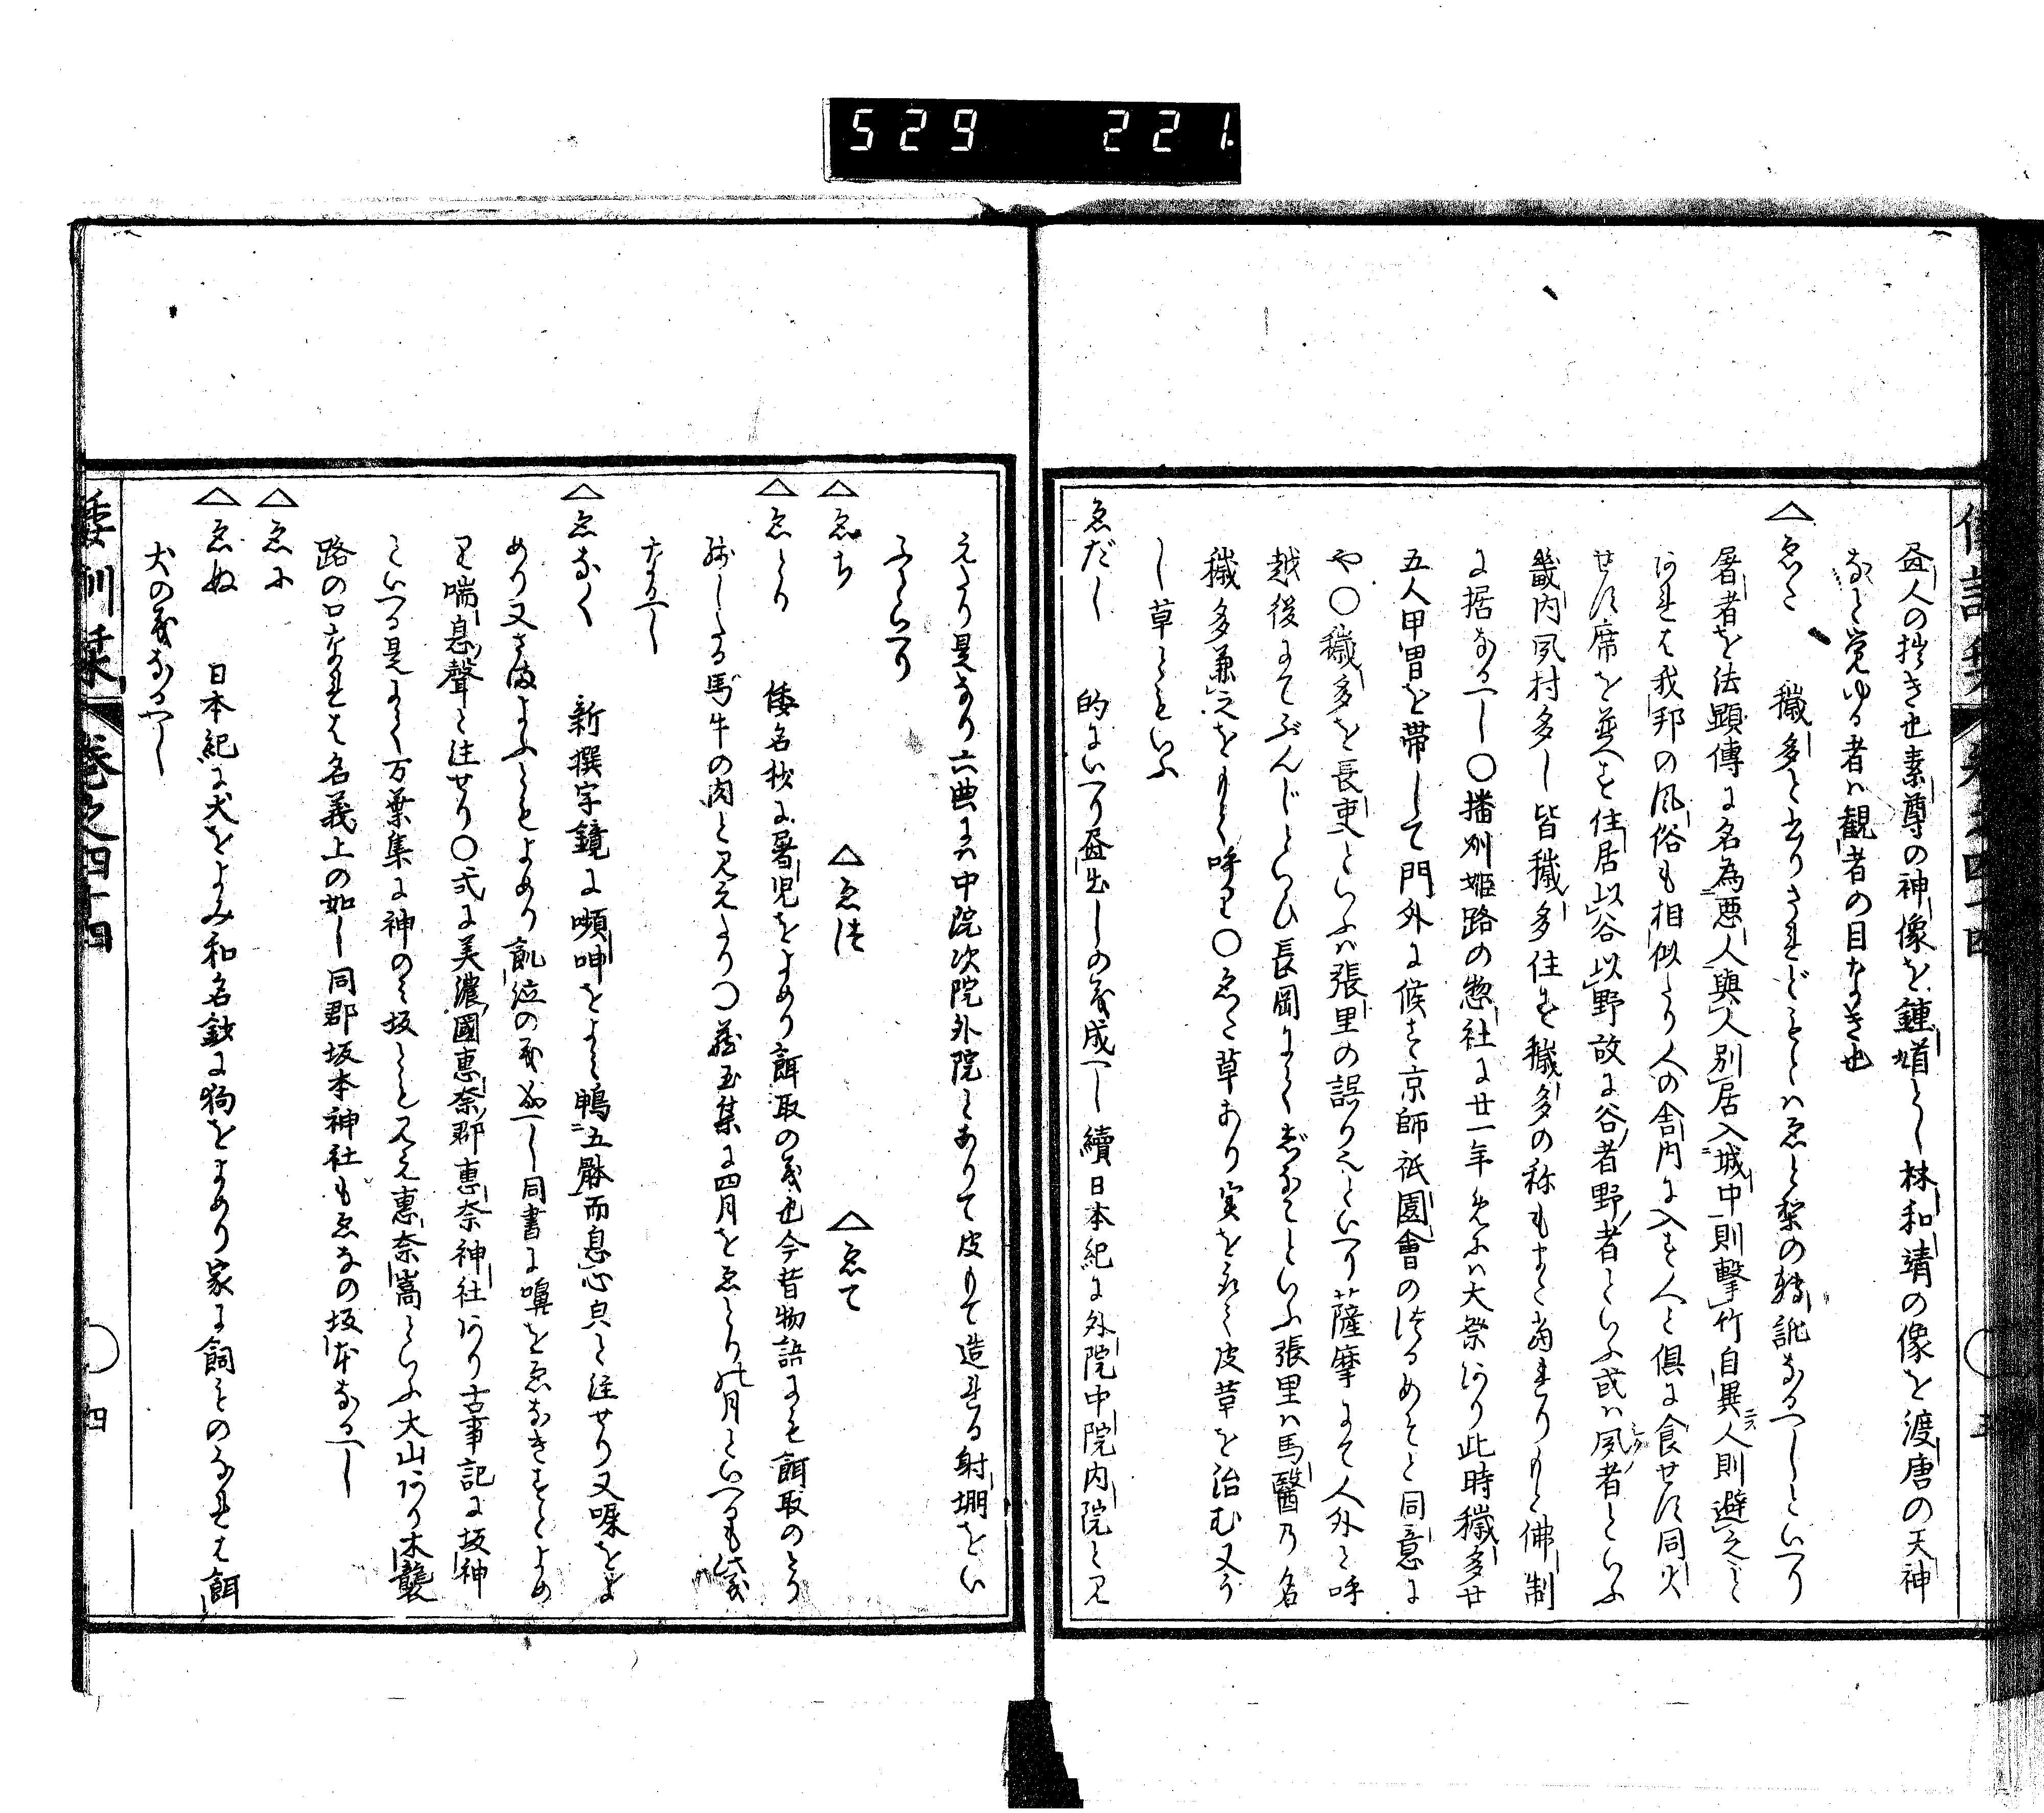 529 221
畫人の拙き也素尊の神像を鍾馗とし林和靖の像を渡唐の天神
なと覚ゆる者ハ観者の目なき也
△ゑた 穢多と書りされどもとハゑと梨の轉訛なるへしといへり
屠者を法顕傳に名為悪人與人別居入城中則撃竹自異人則避之と
あれは我邦の風俗も相似たり人の舎内に入す人と倶に食せす同火
せす席を並へす住居以谷以野故に谷者野者といふ或ハ夙者といふ
畿内夙村多し皆穢多住す穢多の称もまた
に据なるへし〇播州姫路の惣社に廿一年めに大祭あり此時穢多廿
五人甲冑を帯して門外に候す京師祇園會のつるめそと同意に
や〇穢多を長吏といふハ張里の誤りといへり薩摩にて人外と呼
越後にてぶんじといひ長岡にてといふ張里ハ馬醫乃名
穢多兼之をもて呼り〇ゑた草あり実をとり皮草を治む又
し草ともいふ
ゑだし 的にいへり畫出しの義成へし續日本紀に外院中院内院と見
えたり是なり六典に中院次院外院とありて皮もて造れる射堋をい
ふといへり
△ゑち △ゑつ △ゑて
△ゑとり 倭名抄に屠児をよめり餌取の義也今昔物語にも餌取のとり
たる馬牛の肉と見えたり〇蔵玉集に四月をゑとり月といへるも此義
なるへし
△ゑなく 新撰字鏡に嚬呻をよみ鴨五骵而息心皃と注せり又をよ
めり又さまよふともよめり飢泣の義なるへし同書に嚊をゑなきすとよめ
り喘息聲と注せり〇式に美濃國惠奈郡惠奈神社あり古事記に坂神
といへる是にて万葉集に神のみ坂とも見え惠奈嵩といふ大山あり木襲
路の口なれは名義上の如し同郡坂本神社もゑなの坂本なるへし
△ゑに
△ゑぬ 日本紀に犬をよみ和名鈔に狗をよめり家に飼ものなれは餌
犬の義なるへし
倭訓栞 巻之四十四 〇 四